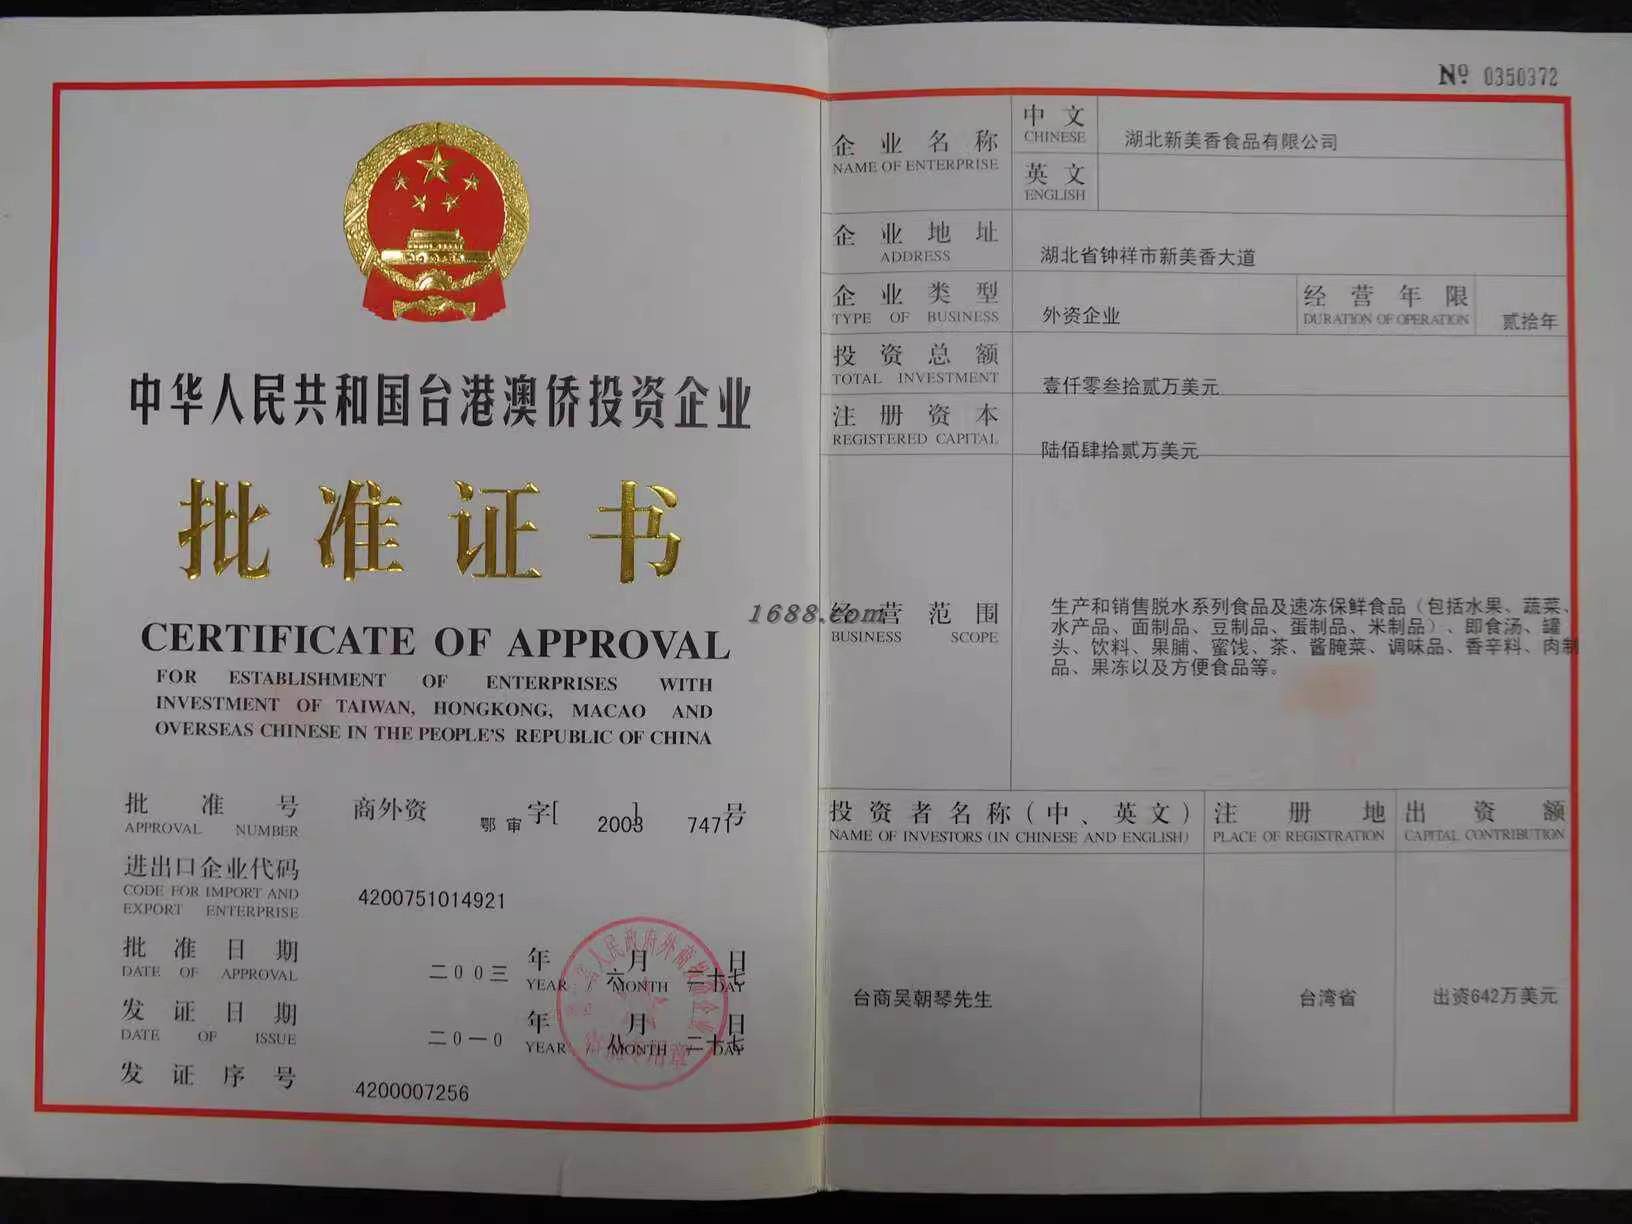 中华人民共和国台港澳侨投资企业
批准证书
CERTIFICATE OF APPROVAL
FOR ESTABLISHMENT OF ENTERPRISES WITH
INVESTMENT OF TAIWAN, HONGKONG, MACAO AND
OVERSEAS CHINESE IN THE PEOPLE'S REPUBLIC OF CHINA
批准号 商外资 鄂审 字[2003]7471号
APPROVAL NUMBER
进出口企业代码
CODE FOR IMPORT AND
EXPORT ENTERPRISE
4200751014921
批准日期 二00三 年 六 月 二十七 日
DATE OF APPROVAL YEAR / MONTH / DAY
发证日期 二0一0 年 八 月 二十七 日
DATE OF ISSUE YEAR / MONTH / DAY
发证序号 4200007256
1688.com
Nº 0350372
企业名称 中文 湖北新美香食品有限公司
NAME OF ENTERPRISE CHINESE
英文
ENGLISH
企业地址 湖北省钟祥市新美香大道
ADDRESS
企业类型 外资企业 经营年限 贰拾年
TYPE OF BUSINESS DURATION OF OPERATION
投资总额 壹仟零叁拾贰万美元
TOTAL INVESTMENT
注册资本 陆佰肆拾贰万美元
REGISTERED CAPITAL
经营范围
BUSINESS SCOPE
生产和销售脱水系列食品及速冻保鲜食品（包括水果、蔬菜、
水产品、面制品、豆制品、蛋制品、米制品）、即食汤、罐
头、饮料、果脯、蜜饯、茶、酱腌菜、调味品、香辛料、肉制
品、果冻以及方便食品等。
投资者名称（中、英文） 注册地 出资额
NAME OF INVESTORS (IN CHINESE AND ENGLISH) PLACE OF REGISTRATION CAPITAL CONTRIBUTION
台商吴朝琴先生 台湾省 出资642万美元